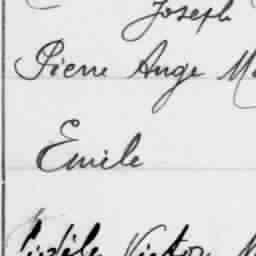 Joseph
Pierre Ange
Emile
Victor